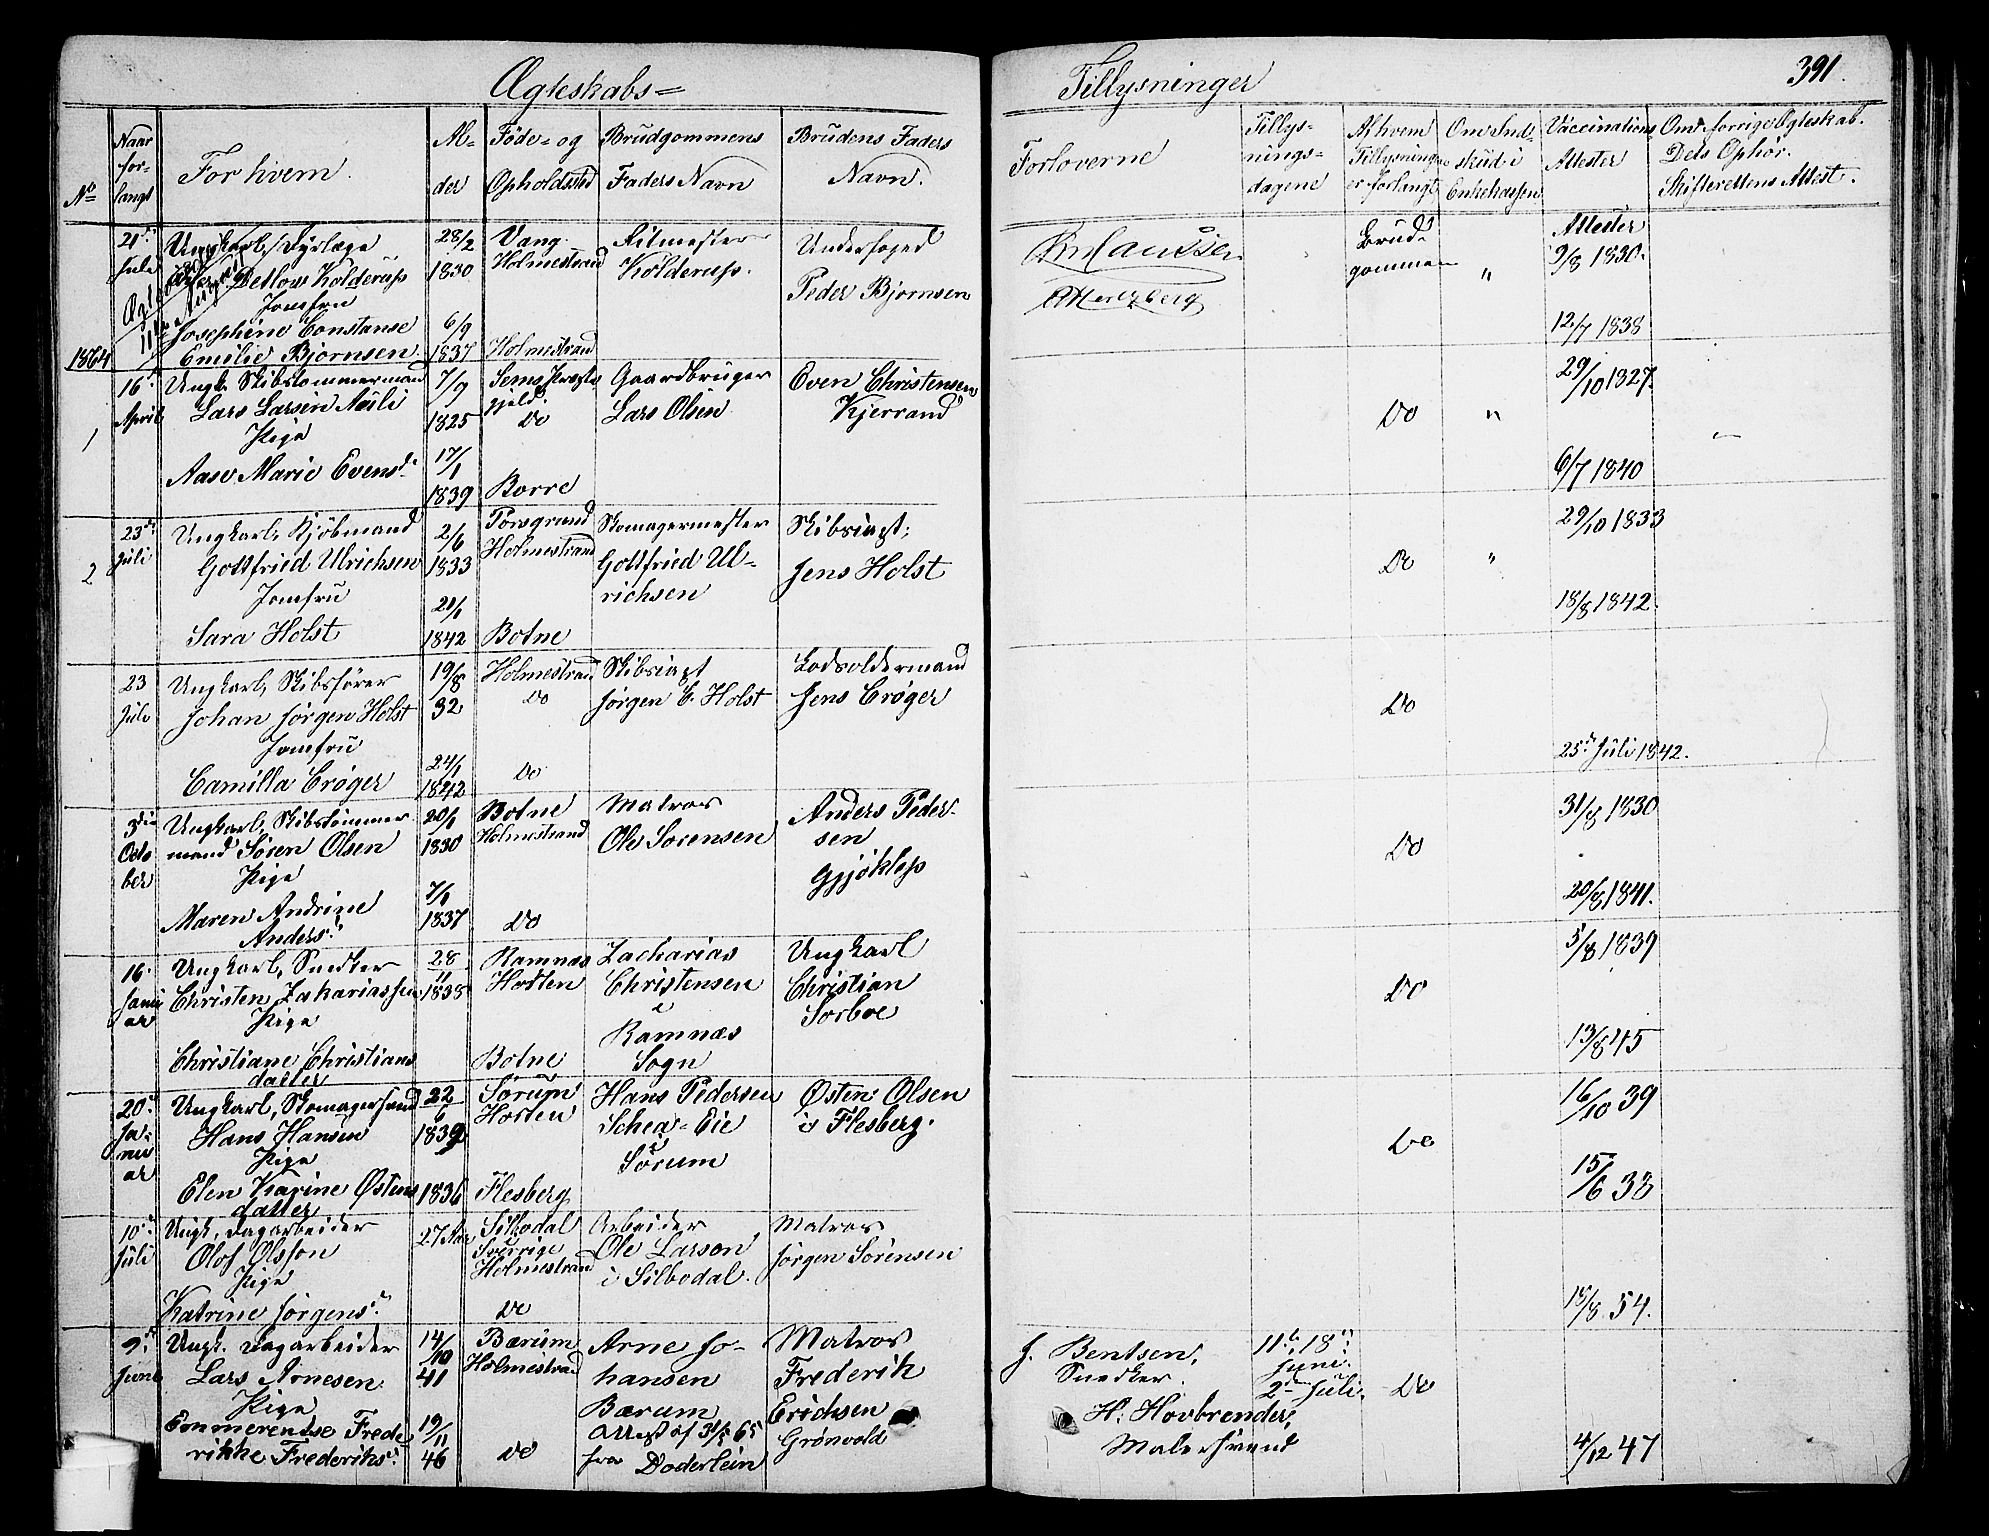 Ægteskabs=
Tillysninger
391.
No
Naar for- langt
For hvem.
Al- der
Føde- og Opholdssted
Brudgommens Faders Navn
Brudens Faders Navn.
Forloverne
Tillys- nings- dagene
Af hvem Tillysningen er forlangt
Om Ind- skud i Enkekassen
Vaccinations Attester
Om forrige Ægteskab. Dets Ophør. Skifterettens Attest.
21de Juli
Ungkarl, Dyrlæge
Detlow Kolderup
Jomfru
Josephine Constanse
Emilie Bjørnsen
28/2 1830
6/9 1837
Vang
Holmestrand
Holmestrand
Ritmester
Kolderup.
Underfoged
Peder Bjørnsen
Hertzberg
Brud-
gommen
"
Attester
9/8 1830.
12/7 1838
1864
1
16de April
Ungk. Skibstømmermand
Lars Larsen
Pige
Aase Marie Evensd.
7/9
1825
17/1
1839
Sems Præste
gjeld.
Do
Borre
Gaardbruger
Lars Olsen
Even Christensen
Kjerrand
Do
"
29/10 1827
6/7 1840
2
23de Juli
Ungkarl, Kjøbmand
Gottfried Ulrichsen
Jomfru
Sara Holst
2/6
1833
21/1
1842
Porsgrund
Holmestrand
Botne
Skomagermester
Gottfried Ul-
richsen
Skibsrigt.
Jens Holst
Do
"
29/10 1833
18/8 1842.
23
Juli
Ungkarl, Skibsfører
Johan Jørgen Holst
Jomfru
Camilla Crøger
19/8
32
24/1
1842
Holmestrand
Do
Do
Skibsrigt
Jørgen C. Holst
Lodsoldermand
Jens Crøger
Do
25de Juli 1842.
3die
Octo
ber
Ungkarl, Skibstømmer
mand Søren Olsen
Pige
Maren Andrine
Anders.
20/1
1830
7/1
1837
Botne
Holmestrand
Do
Matros
Ole Sørensen
Anders Peder-
sen
Gjøklep
Do
31/8 1830
20/8 1841.
16.
Janu
ar
Ungkarl, Snedker
Christen Zakariassen
Pige
Christiane Christians
datter
28/11
1838
Ramnæs
Horten
Botne
Zacharias
Christensen
i
Ramnæs
Sogn
Ungkarl
Christian
Sorboe
Do
5/8 1839
13/8 45
20de
Ja-
nu
ar
Ungkarl, Skomagersvend
Hans Hansen
Pige
Elen Karine Østens
datter
22/6
1839
1836
Sørum
Horten
Flesberg
Hans Pedersen
Schea-Eie
i
Sørum
Østen Olsen
i Flesberg.
Do
16/10 39
15/6 38
10de
Juli
Ungk. Dagarbeider
Olof Olsson
Pige
Katrine Jørgens.
27 Aar
Silbodal
Sverrige
Holmestrand
Do
Arbeider
Ole Larson
i Silbodal.
Matros
Jørgen Sørensen
18/8 54.
9de
Juni
Ungk. Dagarbeider
Lars Arnesen
Pige
Emmerentse Frede
rikke Frederiks.
14/10
41
19/11
46
Bærum
Holmestrand
Do
Arne Jo-
hansen
Bærum
Attest af 31/5 65
fra Doderlein
Matros
Frederik
Erichsen
Grønvold
J. Bentsen,
Snedker.
H: Hovbrender,
Malersvend
11te, 18de
Juni.
2den Juli.
Do
4/12 47